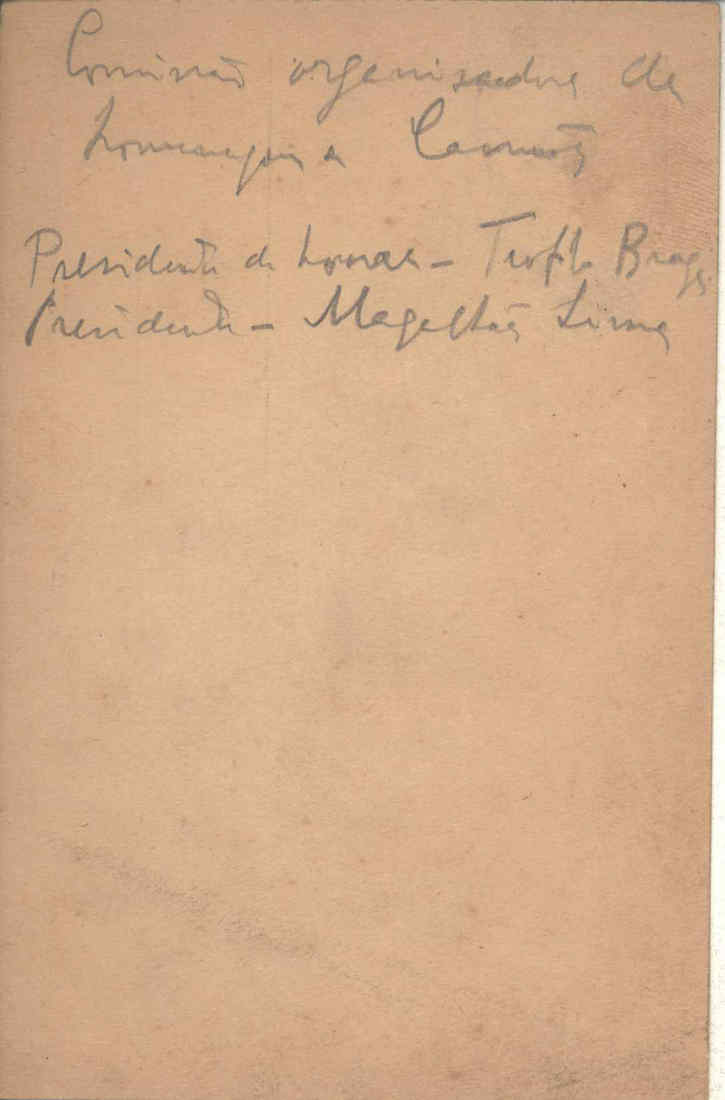 Comissão organisadora da
homenagem a Camões
Presidente de honra - Teofilo Braga
Presidente - Magalhães Lima